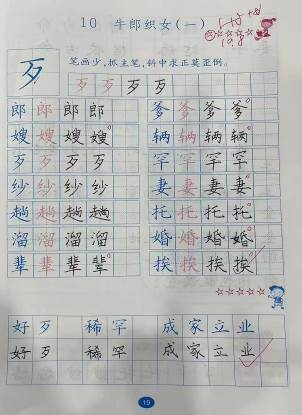 10 牛郎织女(一)
19.8
歹 笔画少，抓主笔，斜中求正莫歪倒。
歹 歹 歹 歹
郎 郎 郎 郎 爹 爹 爹 爹
嫂 嫂 嫂 嫂 辆 辆 辆 辆
歹 歹 歹 歹 罕 罕 罕 罕
纱 纱 纱 纱 妻 妻 妻 妻
趟 趟 趟 趟 托 托 托 托
溜 溜 溜 溜 婚 婚 婚 婚
辈 辈 辈 辈 挨 挨 挨 挨
好 歹 稀 罕 成 家 立 业
好 歹 稀 罕 成 家 立 业
19